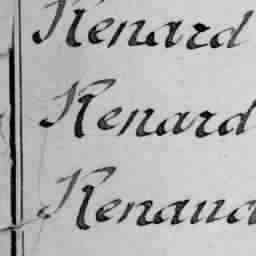 Renard
Renard
Renaud